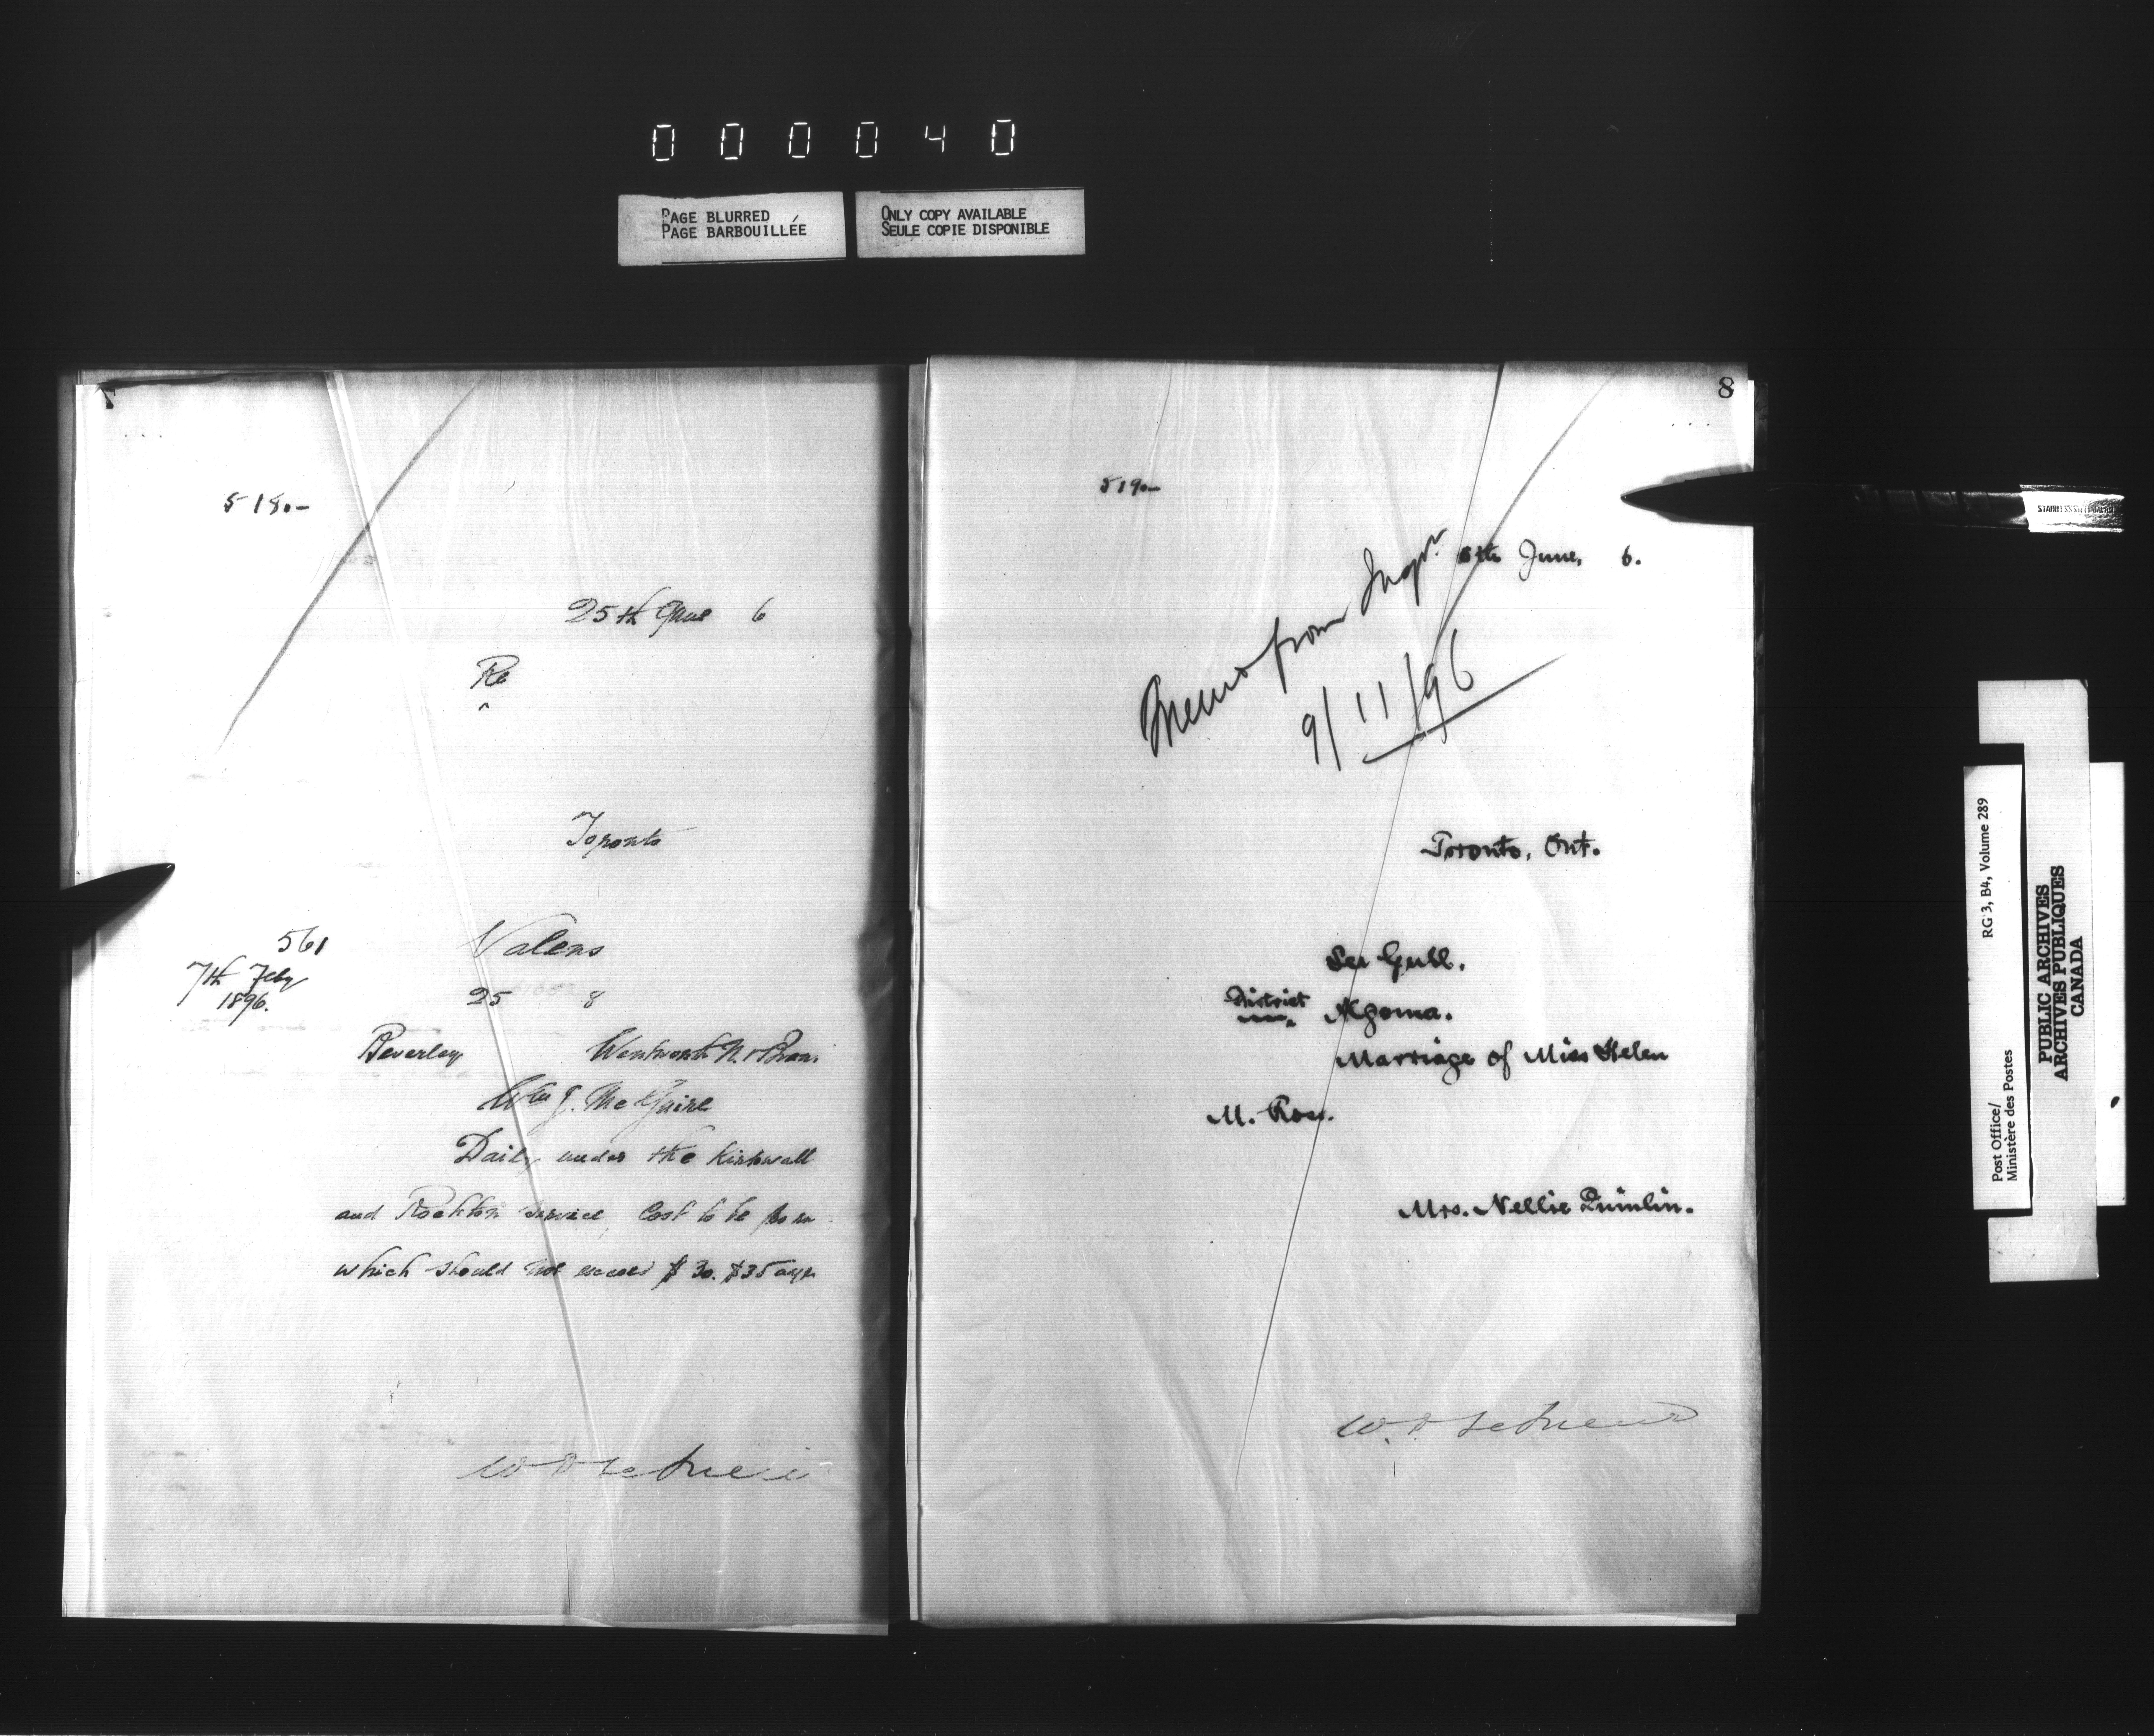 000040
PAGE BLURRED
PAGE BARBOUILLÉE
ONLY COPY AVAILABLE
SEULE COPIE DISPONIBLE
7
518.-
25th June 6
Re
Toronto
561
7th Feby
1896.
Valens
25 8
Beverley Wentworth N. & Brant
Wm J. McGuire
Daily under the Kirkwall
and Rockton service, Cost to be
which should not exceed $30. $35 a yr
8
519.-
8th June, 6.
Memo from Inspr.
9/11/96
Toronto, Ont.
Sea Gull.
District Algoma.
Marriage of Miss Helen
M. Ross.
Mrs. Nellie Quinlin.
RG 3, B4, Volume 289
Post Office/
Ministère des Postes
PUBLIC ARCHIVES
ARCHIVES PUBLIQUES
CANADA